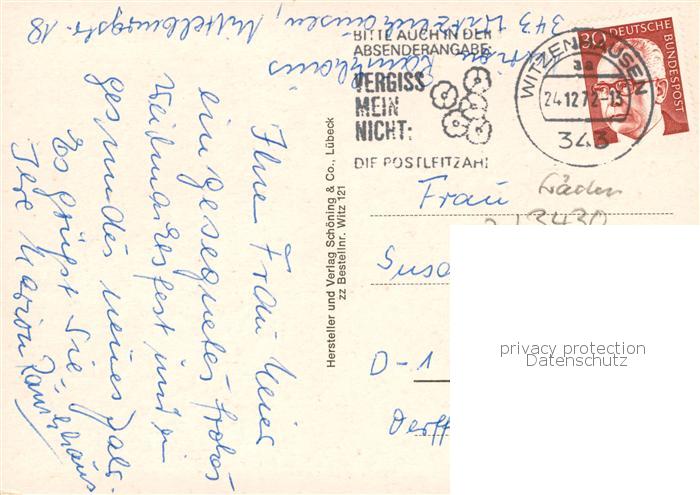 343 Witzenhausen, Mittelburgstr. 18
Marion
BITTE AUCH IN DER
ABSENDERANGABE
VERGISS
MEIN
NICHT:
DIE POSTLEITZAHL
WITZENHAUSEN
aa
24.12.72-13
343
30
DEUTSCHE BUNDESPOST
Ihne Frau Meier
ein gesegnetes frohes
Weihnachtsfest und ein
gesundes neues Jahr.
Es grüßt Sie
Ihre Marion
Hersteller und Verlag Schöning & Co., Lübeck
zz Bestellnr. Witz 121
Frau
3430
Susa
D-1
privacy protection
Datenschutz